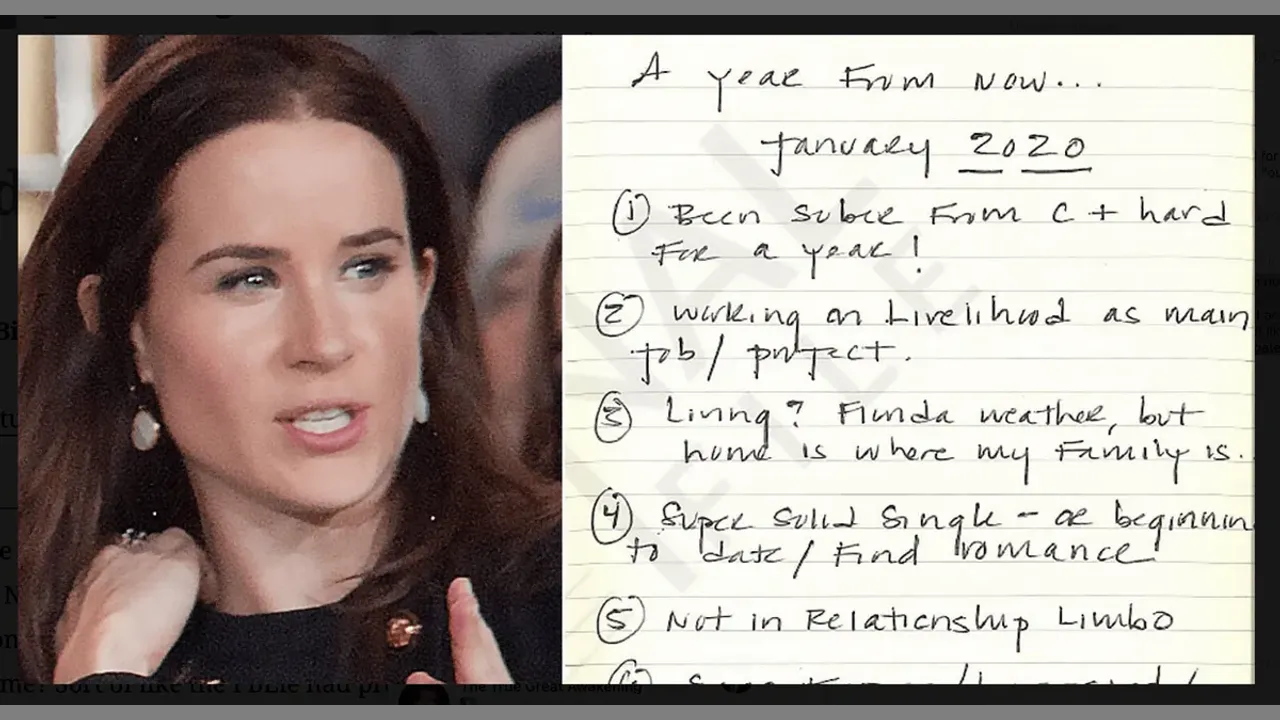 A year From Now...
January 2020
① Been sober From C + hard
For a year!
② Working on Livelihood as main
job / project.
③ Living? Florida weather, but
home is where my Family is.
④ Super Solid Single - or beginnin
to date / Find romance
⑤ Not in Relationship Limbo
The True Great Awakening